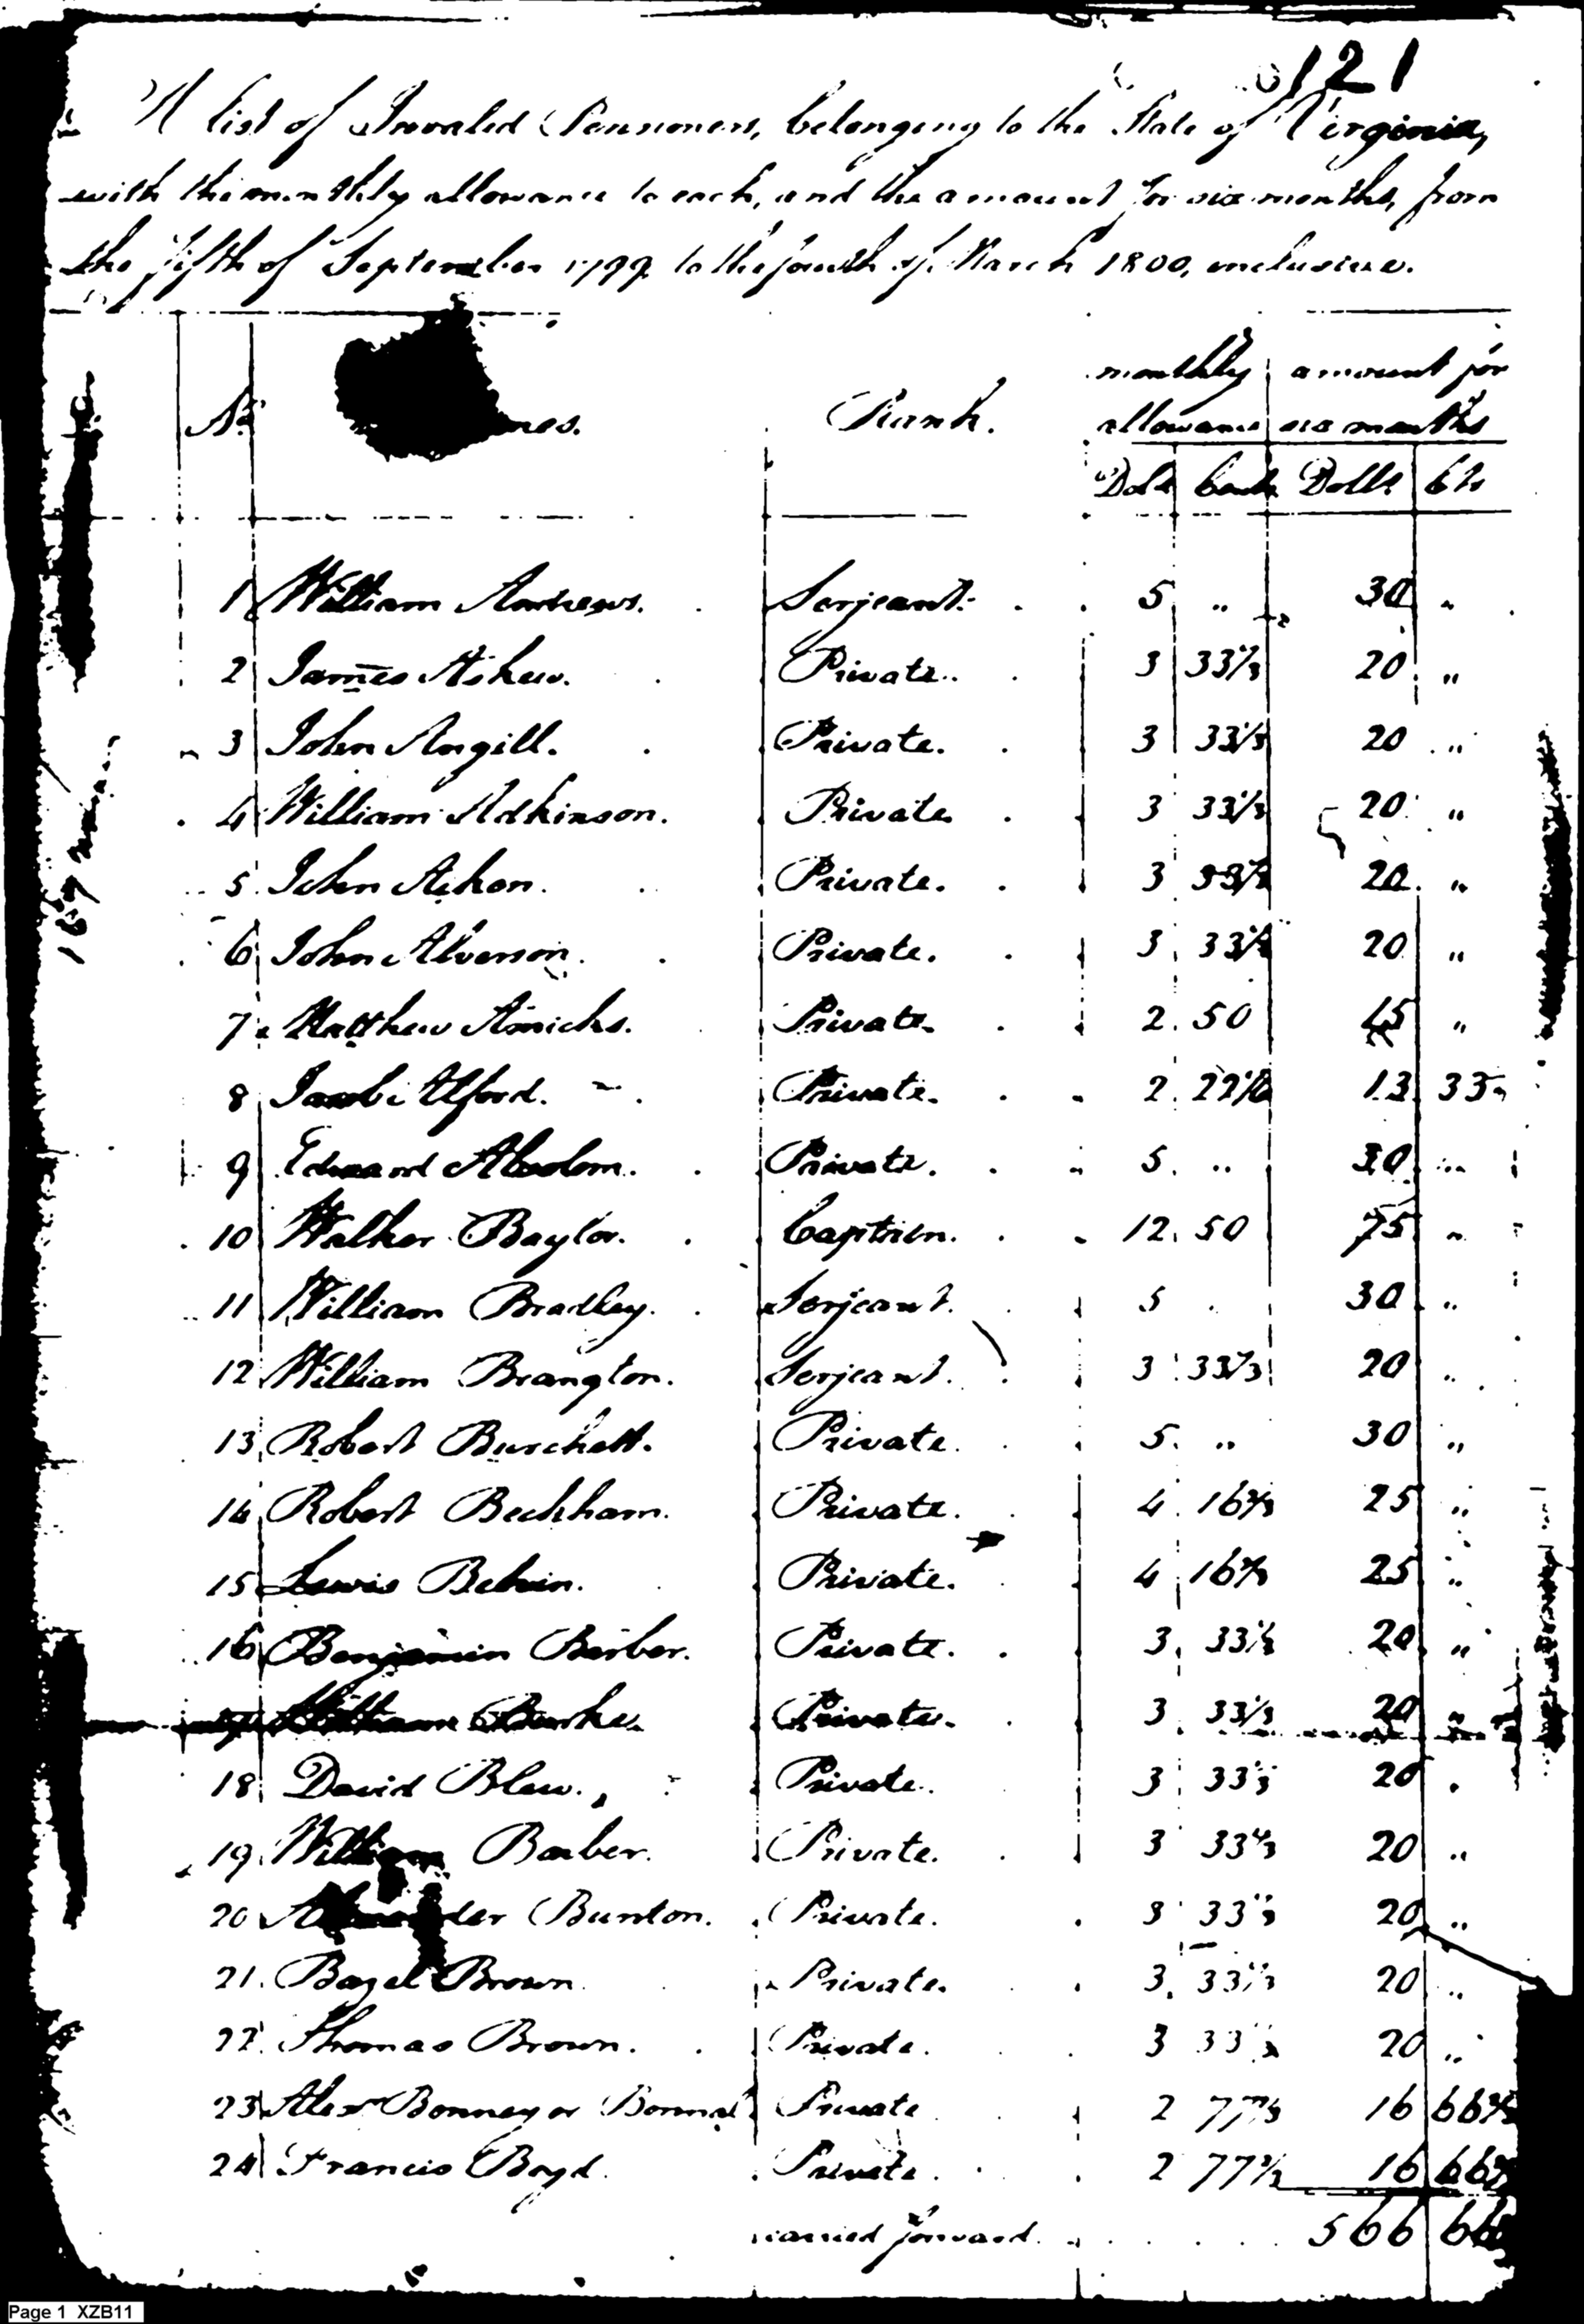 121
A list of Invalid Pensioners, belonging to the State of Virginia,
with the monthly allowance to each, and the amount for six months, from
the fifth of September 1799 to the fourth of March 1800, inclusive.
No. Rank. monthly allowance amount for six months
Dols Cents Dolls Cts
1 William Andrews. Serjeant. 5 " 30 "
2 James Askew. Private. 3 33 1/3 20 "
3 John Angill. Private. 3 33 1/3 20 "
4 William Adkinson. Private 3 33 1/3 20 "
5 John Private. 3 33 1/3 20 "
6 John Alverson. Private. 3 33 1/3 20 "
7 Matthew Amicks. Private. 2 50 15 "
8 Jacob Alford. Private. 2 22 13 33
9 Edward Absolom. Private. 5 " 30 "
10 Walker Baylor. Captain. 12 50 75 "
11 William Bradley. Serjeant. 5 30 "
12 William Brangton. Serjeant. 3 33 1/3 20 "
13 Robert Burchett. Private. 5 " 30 "
14 Robert Beckham. Private. 4 16 2/3 25 "
15 Lewis Belvin. Private. 4 16 2/3 25 "
16 Benjamin Barber. Private. 3 33 1/3 20 "
William Burke. Private. 3 33 1/3 20 "
18 David Blew. Private. 3 33 1/3 20 "
19 William Barber. Private. 3 33 1/3 20 "
20 Bunton. Private. 3 33 1/3 20 "
21 Bazel Brown Private. 3 33 1/3 20 "
22 Thomas Brown. Private. 3 33 1/3 20 "
23 Alexr Bonney or Private 2 77 16 66 2/3
24 Francis Boyd. Private. 2 77 16 66 2/3
carried forward 566 66
Page 1 XZB11